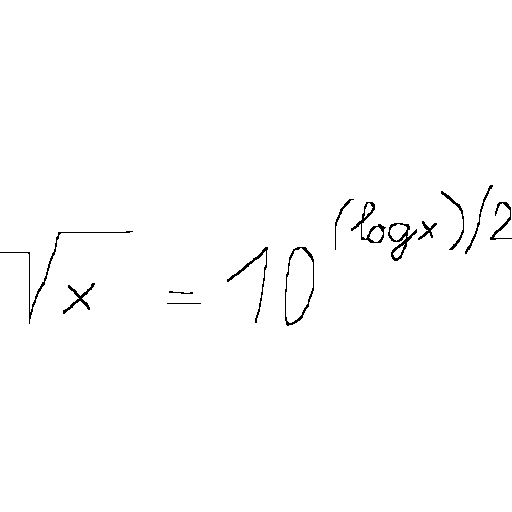 √x = 10^((log x)/2)